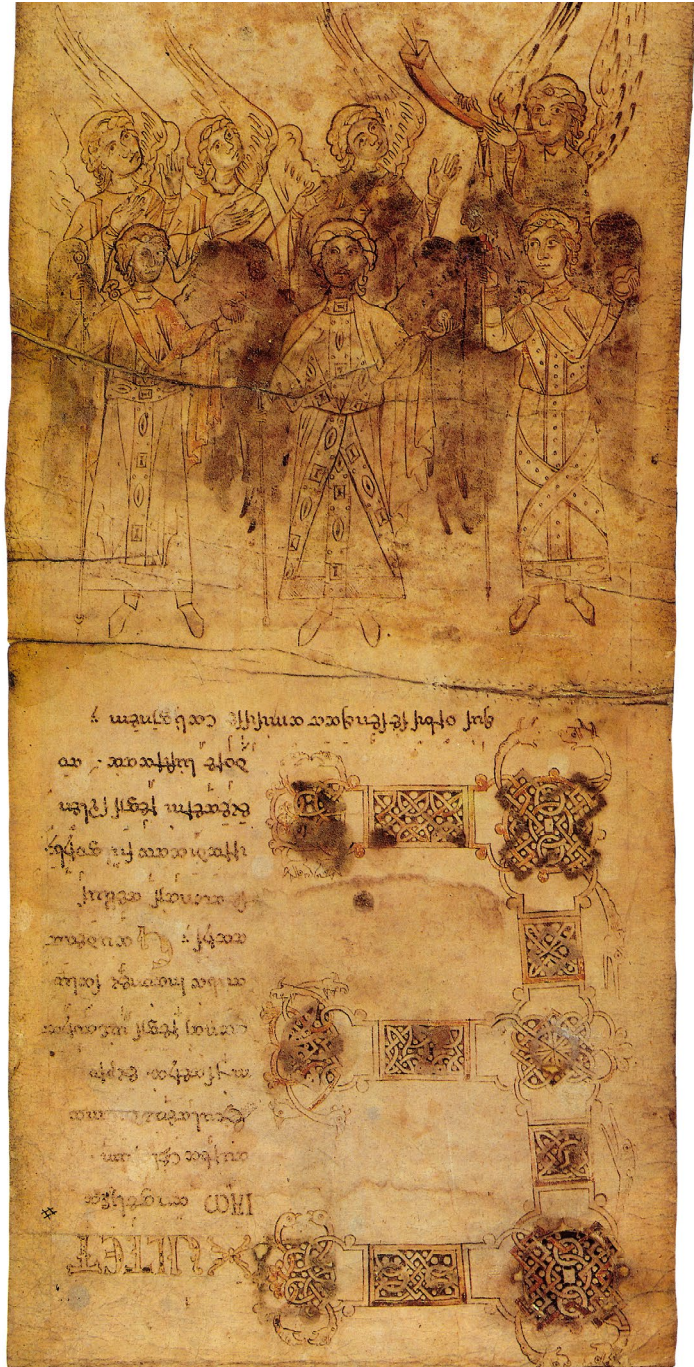 EXULTET
IAM angelica
turba celorum.
Exultent divina
mysteria. et pro
tanti regis victoria
tuba intonet salu
taris; Gaudeat
se tantis tellus
irradiata fulgorib;
et eterni regis splen
dore lustrata. to
tius orbis se sentiat amisisse caliginem;